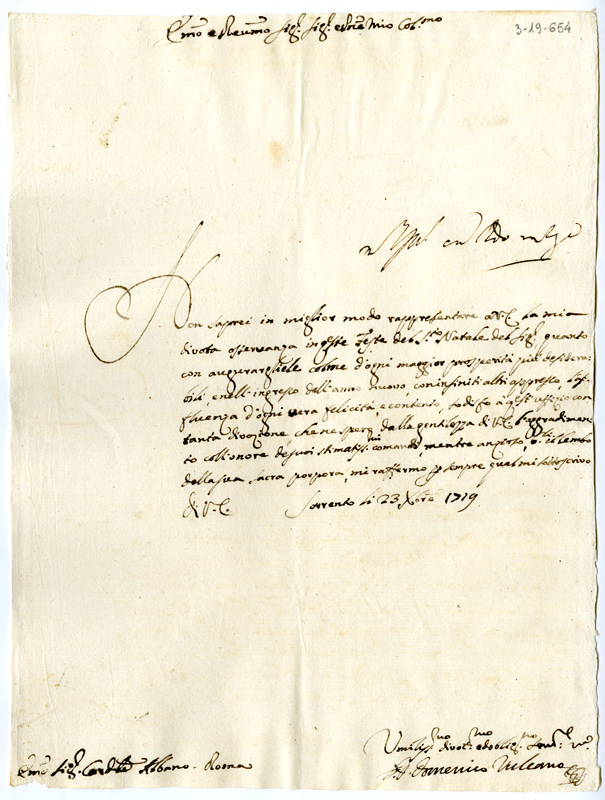 3-19-654
Emo e Reumo Sig.r Sig.r e Pne mio Col.mo
Non saprei in miglior modo rappresentare a V.E. la mia
divota osservanza in q̃ste Feste del S.to Natale del Sig.r quanto
con augurargliele colme d'ogni maggior prosperità più desidera-
bili, e nell'ingresso dell'anno nuovo con infiniti altri appresso, l'af-
fluenza d'ogni vera felicità, e contento, sodisfo à q̃st'uffizio con
tanta divozione che ne spero dalla gentilezza di V.E. l'aggradimen-
to coll'onore de suoi stimatiss.mi comandi, mentre
della sua sacra porpora, mi raffermo p sempre qual mi sottoscrivo
di V.E. Sorrento li 23 Xbre 1719
Umiliss.mo divot.mo ed obblig.mo Serv.e
Domenico Vulcano
Emo Sig.r Card.le Albano. Roma